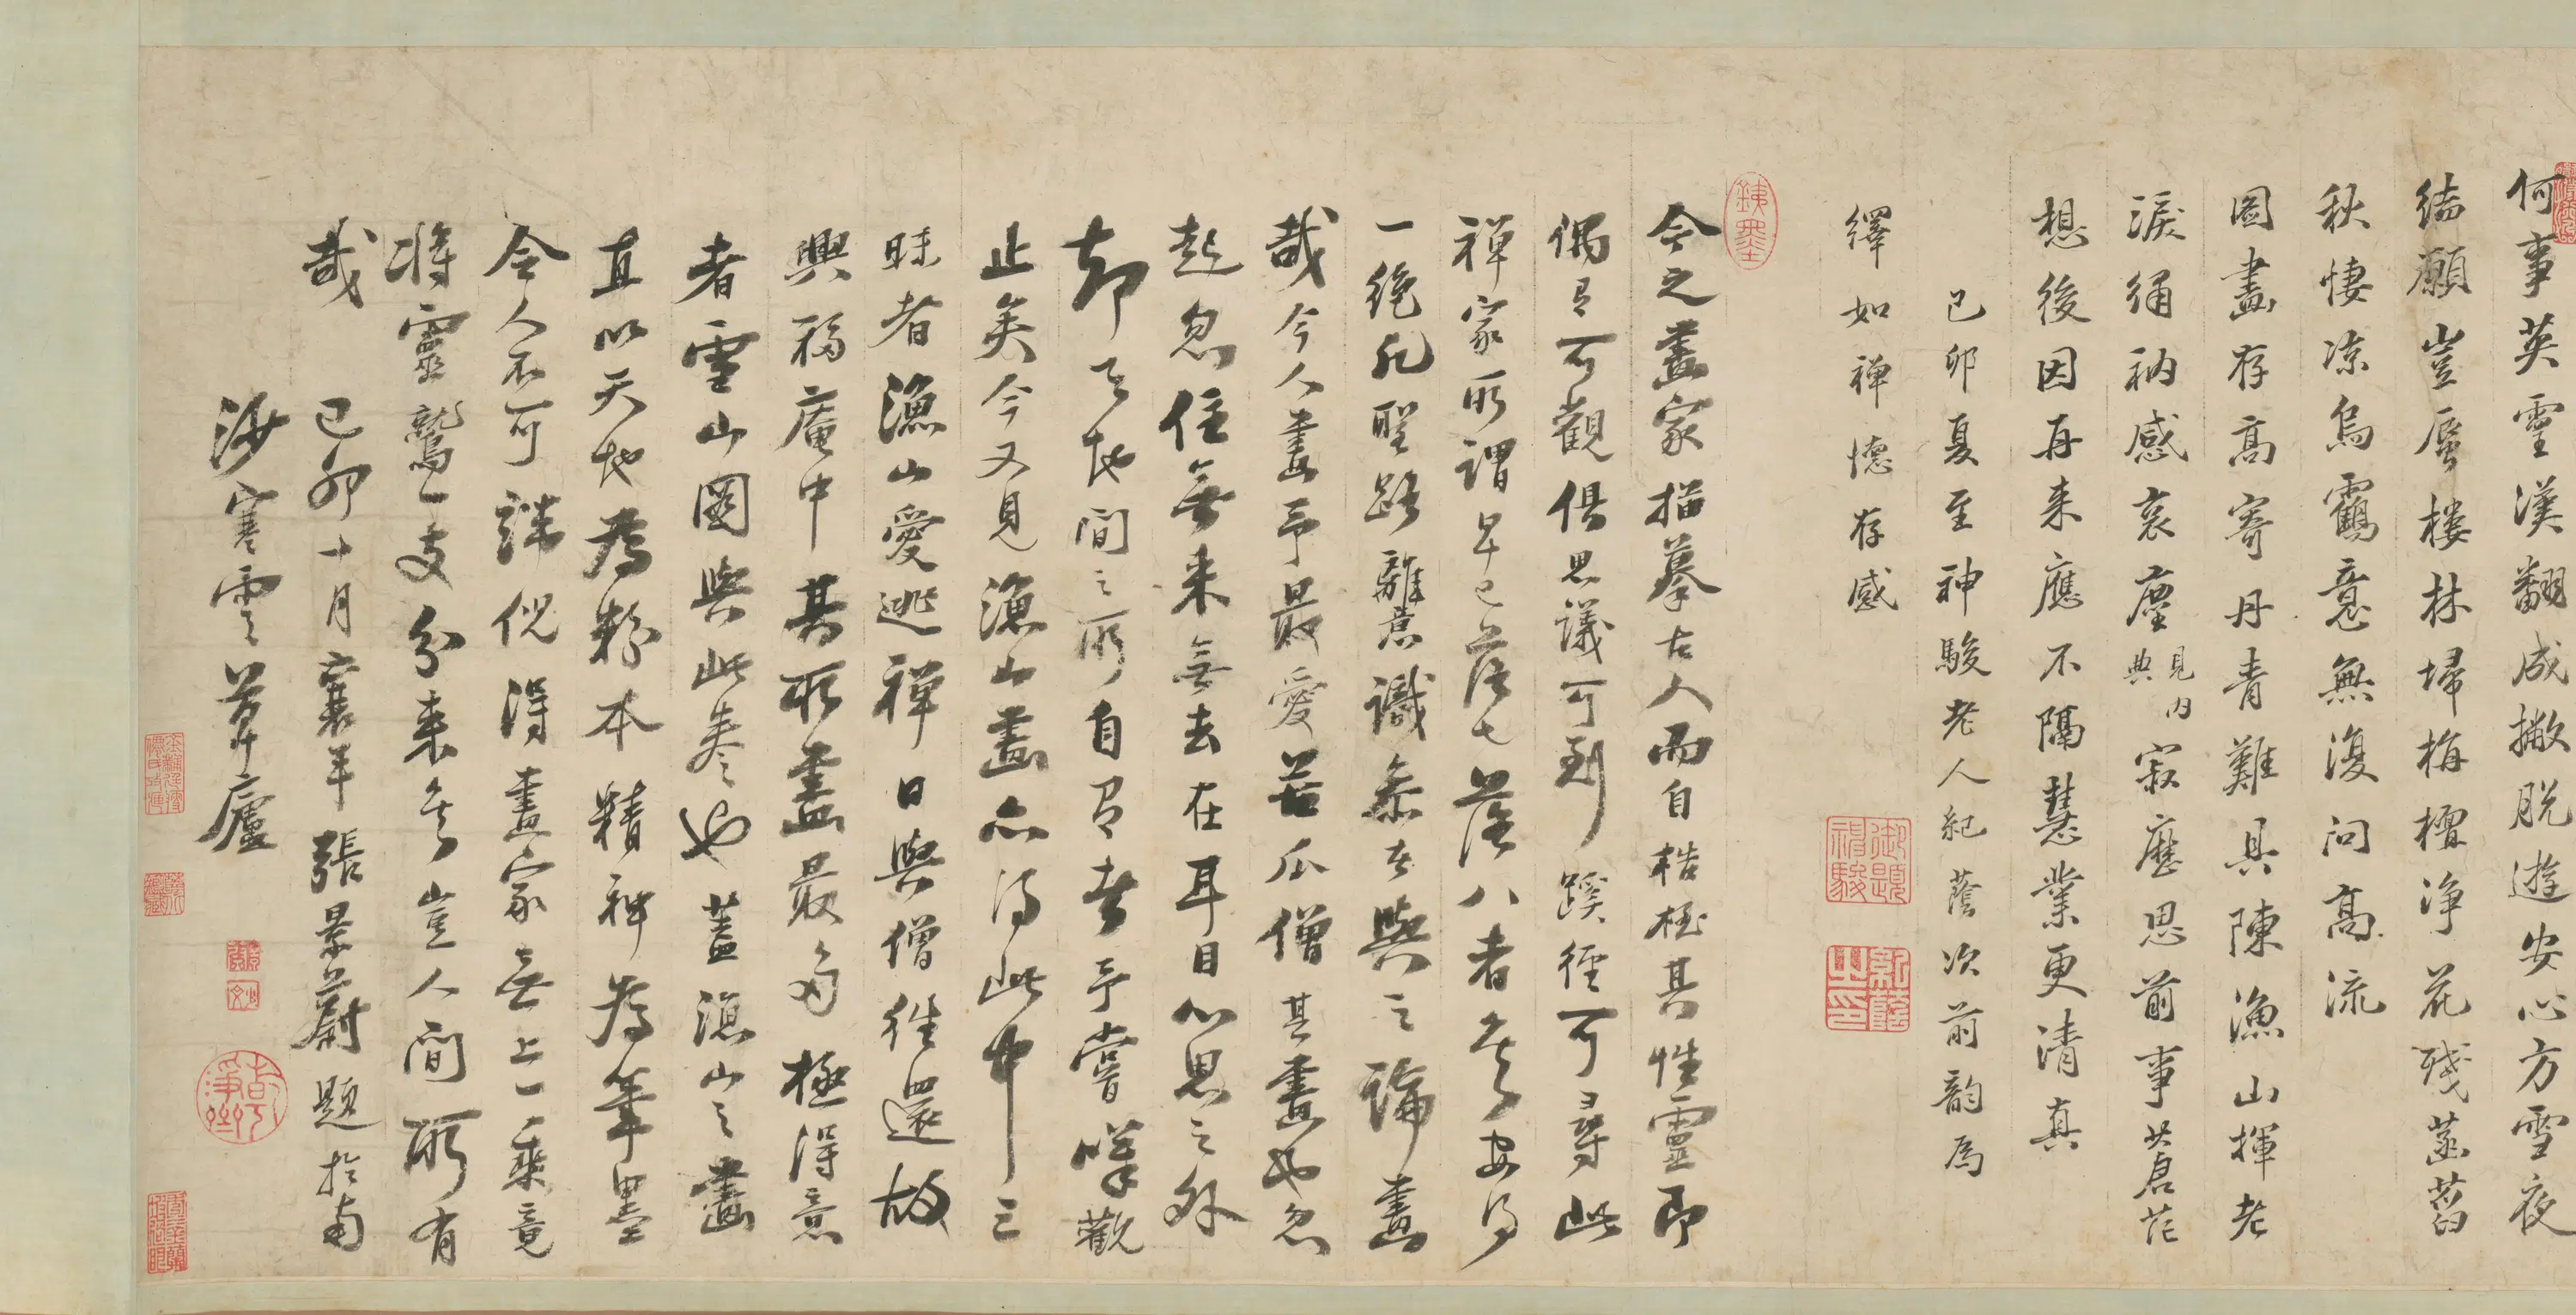 何事英靈漢翻成撇脫遊安心方雪夜
結願豈蜃樓林埽栴檀淨花殘菡萏
秋悽涼烏鸛意無復問高流
圖畫存高寄丹青難具陳漁山揮老
淚彌衲感哀塵見内典寂歷思前事蒼茫
想後因再来應不隔慧業更清真
己卯夏至神駿老人紀蔭次前韵為
繹如禪德存感
今之畫家描摹古人而自梏桎其性靈即
偶有可觀俱思議可到蹊徑可尋此
禪家所謂早已落七落八者矣安得
一絶凡聖路離意識參者與之論畫
哉今人畫予最愛苦瓜僧其畫也忽
起忽住無来無去在耳目心思之外
却天地間之所自有者予嘗嘆觀
止矣今又見漁山畫亦得此中三
昧者漁山愛逃禪日與僧往還故
興福庵中其所畫最多極得意
者雪山圖與此卷也蓋漁山之畫
直以天地為粉本精神為筆墨
今人不可端倪得畫家無上一乘竟
將靈鷲一支分来矣豈人間所有
哉
己卯十月襄平張景蔚題於南
沙寒雲草廬
鐵墨
御題神駿